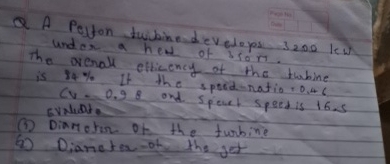 Q A Pelton turbine develops 3200 kw
under a hed of 350 m.
The overall efficency of the turbine
is 84% If the speed ratio = 0,46
Cv = 0.98 and specet speed is 16.5
evaluate
① Diameter of the turbine
② Diameter of the jet